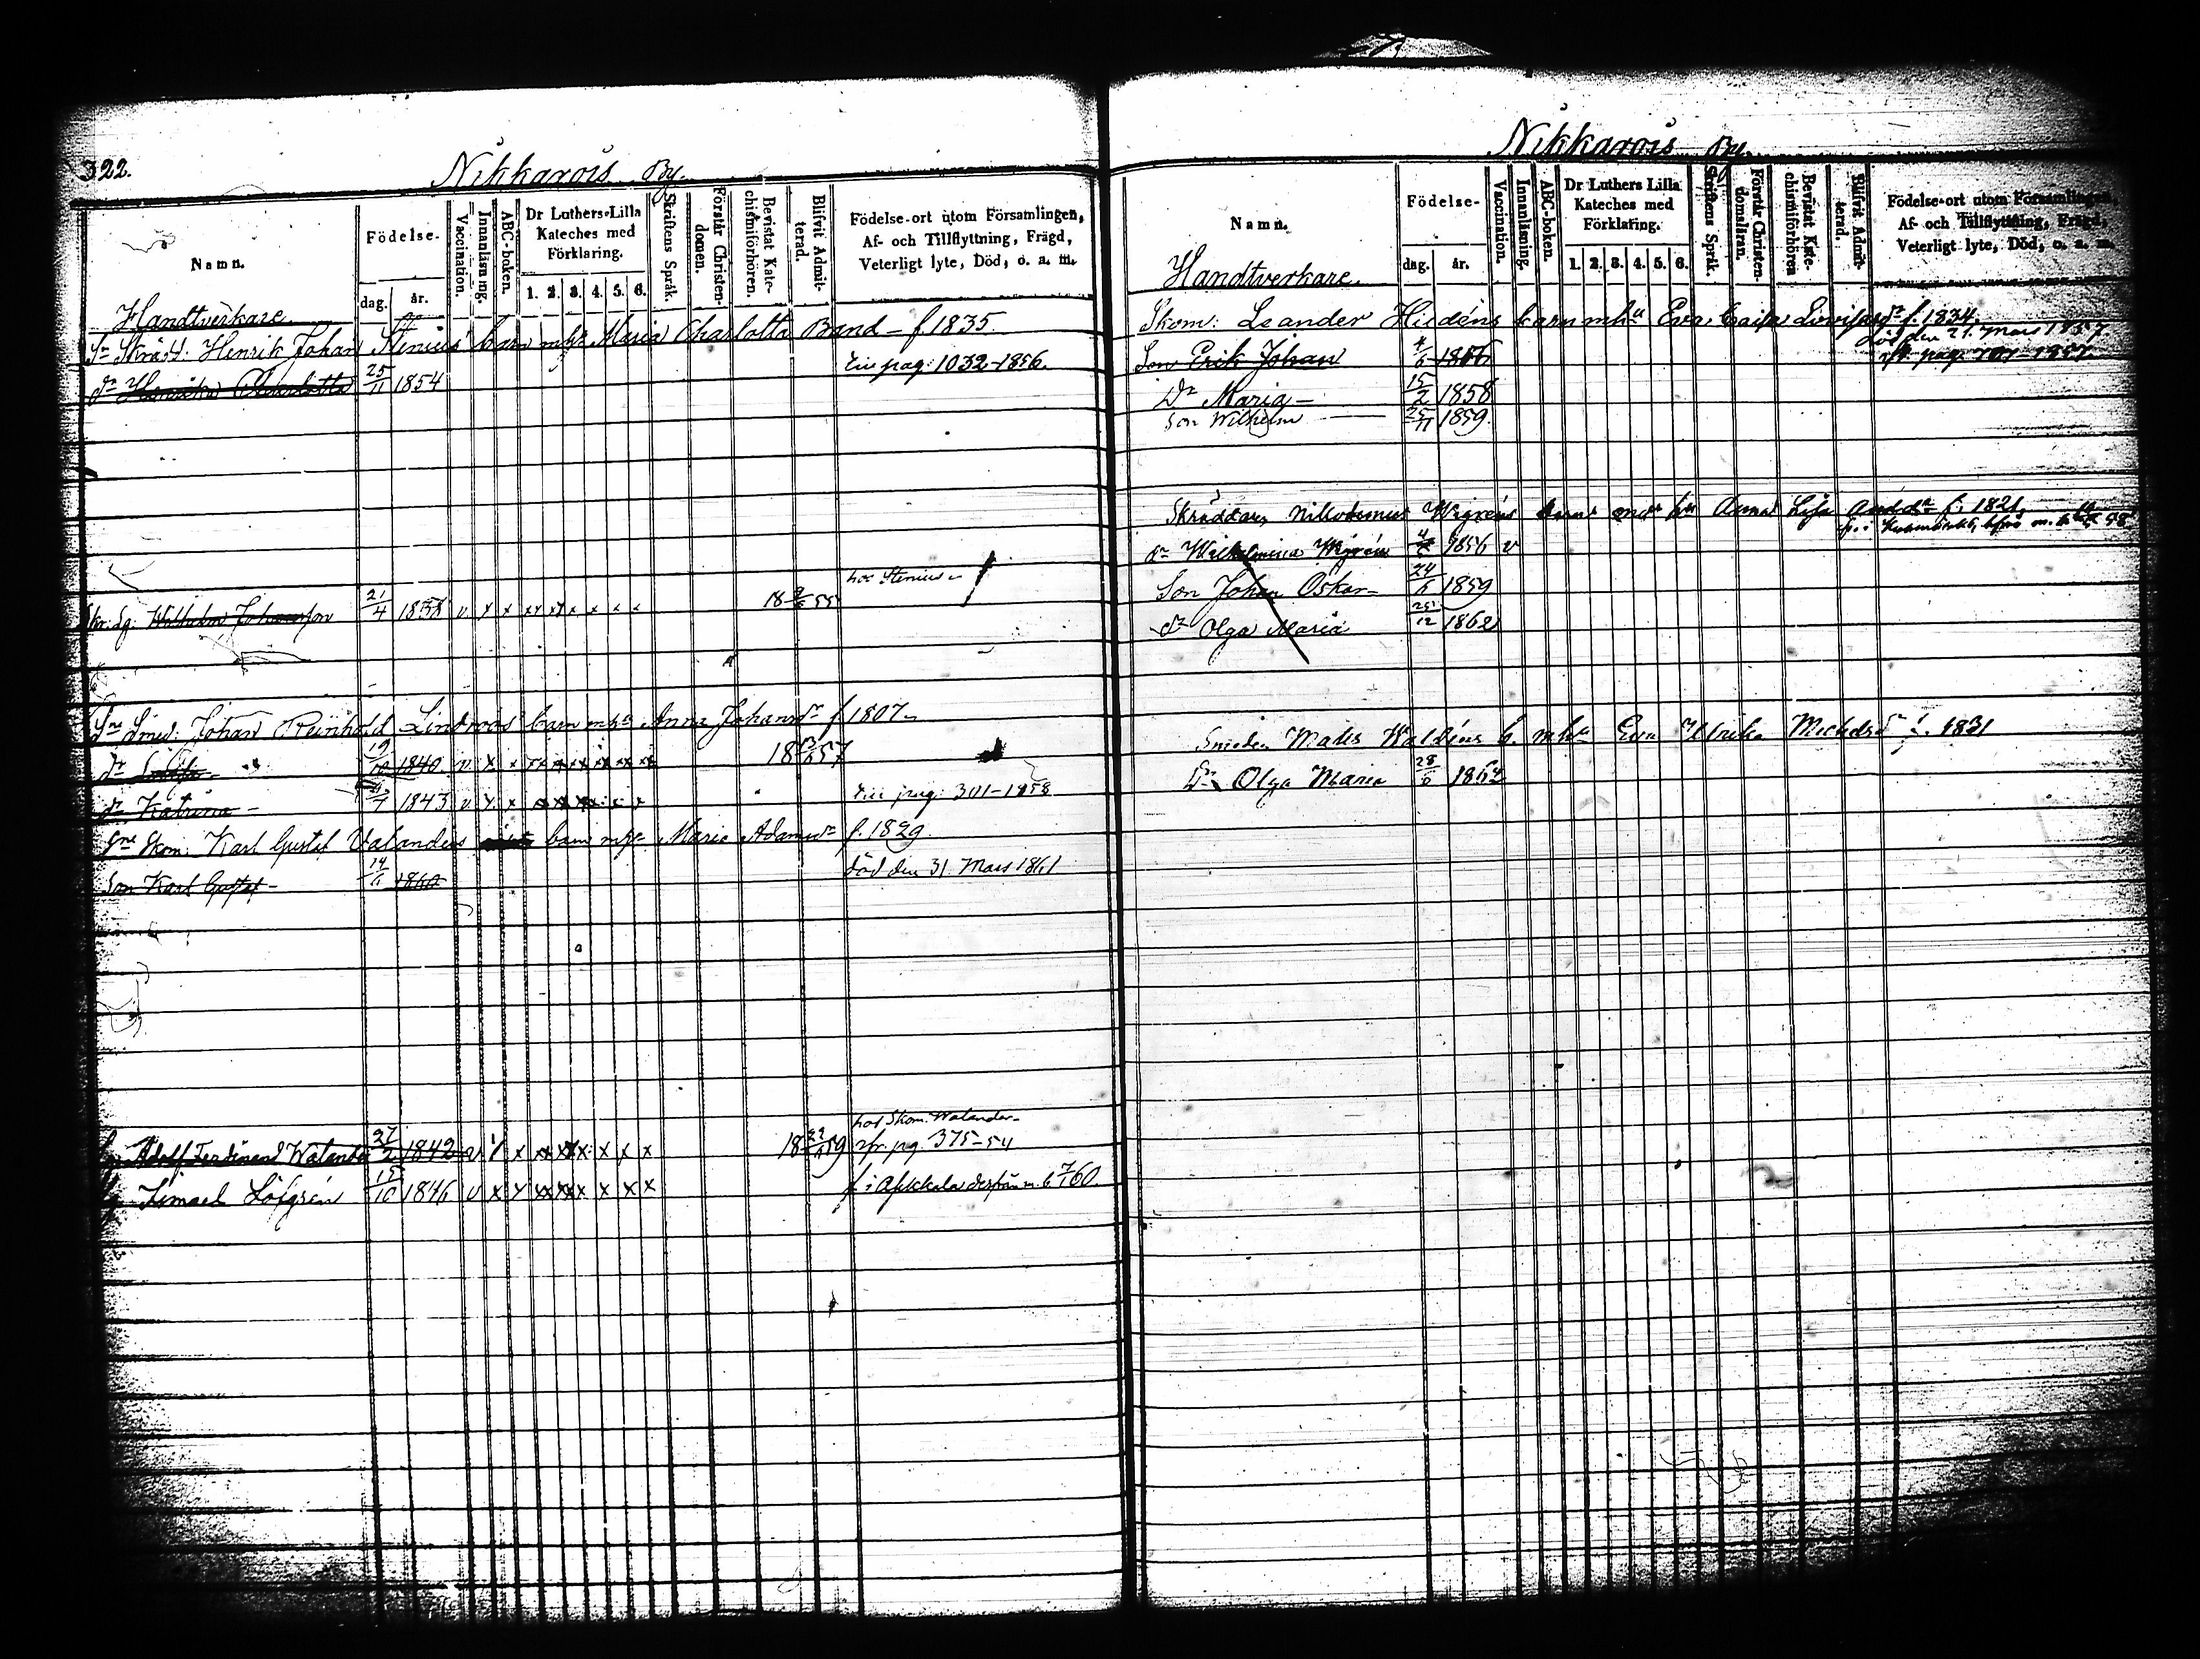 322.
Nikkarois By
Namn.
Födelse-
dag.
år.
Vaccination.
Innanläsning.
ABC-boken.
Dr Luthers Lilla Kateches med Förklaring.
1. 2. 3. 4. 5. 6.
Skriftens Språk.
Förstår Christendomen.
Bevistat Katechismiförhören.
Blifvit Admitterad.
Födelse-ort utom Församlingen, Af- och Tillflyttning, Frägd, Veterligt lyte, Död, o. a. m.
Handtverkare
Henrik Johan Stenius barn m hu Maria Charlotta Band – f 1835
dr Charlotta 25/11 1854 till pag: 1032–1856.
hos Stenius
Wilhelm Johansson 21/4 1838 v x x xx xx x x x 55
Johan Reinhold Lindroos barn m hu Anna Johansdr f 1807
dr 19/10 1840. v x x 57
dr Katrina – 1843 v x x till pag: 301–1858
Skom. Karl Gustaf Valanders barn m hu Maria Adamsdr f. 1829
Son Karl Gustaf – 14/11 1860 död den 31 Mars 1861
hos Skom. Walander
Adolf Ferdinand Walander 27/2 1842 v x x 59 fr. pg. 375–54
Ismael Löfgrén 15/10 1846 v x x
Nikkarois By.
Namn.
Födelse-
dag.
år.
Vaccination.
Innanläsning.
ABC-boken.
Dr Luthers Lilla Kateches med Förklaring.
1. 2. 3. 4. 5. 6.
Skriftens Språk.
Förstår Christendomsläran.
Bevistat Katechismiförhören
Blifvit Admitterad.
Födelse-ort utom Församlingen, Af- och Tillflyttning, Frägd, Veterligt lyte, Död, o. a. m.
Handtverkare.
Skom: Leander Hidéns barn m hu Eva Caisa Lovisa dr f. 1834.
död den 21 Mars 1857
Son Erik Johan 4/6 1856
Dr Maria – 15/2 1858
Son Wilhelm 25/11 1859.
Skräddare Nikodemus Wigréns barn med hu Anna Lisa And.dr f. 1821
dr Wilhelmina Wigrén 1856 v
Son Johan Oskar – 24/6 1859
dr Olga Maria 25/12 1862
Smeden Mats Waldéns b. m hu Eva Ulrika Michelsdr f. 1831
Dr Olga Maria 28/6 1862